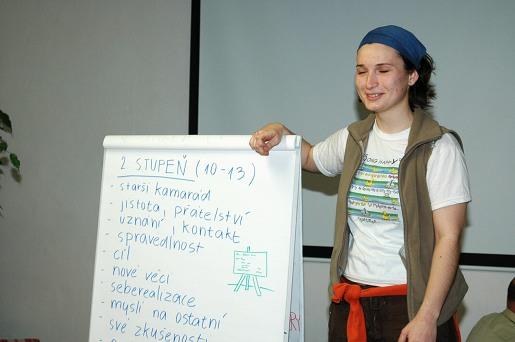 2 STUPEŇ (10-13)
- starší kamarád
- jistota, přátelství
- uznání, kontakt
- spravedlnost
- cíl
- nové věci
- seberealizace
- myslí na ostatní
- své zkušenosti